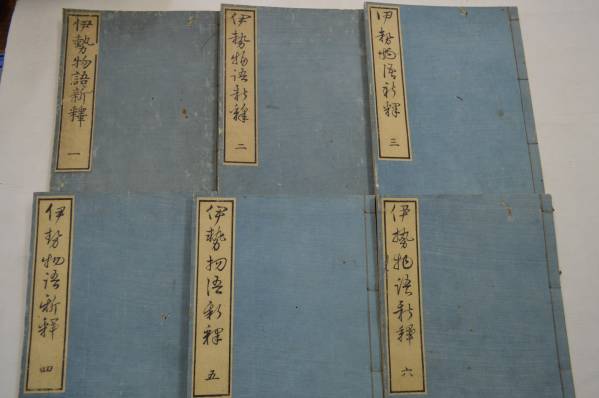 伊勢物語新釋 一
伊勢物語新釋 二
伊勢物語新釋 三
伊勢物語新釋 四
伊勢物語新釋 五
伊勢物語新釋 六